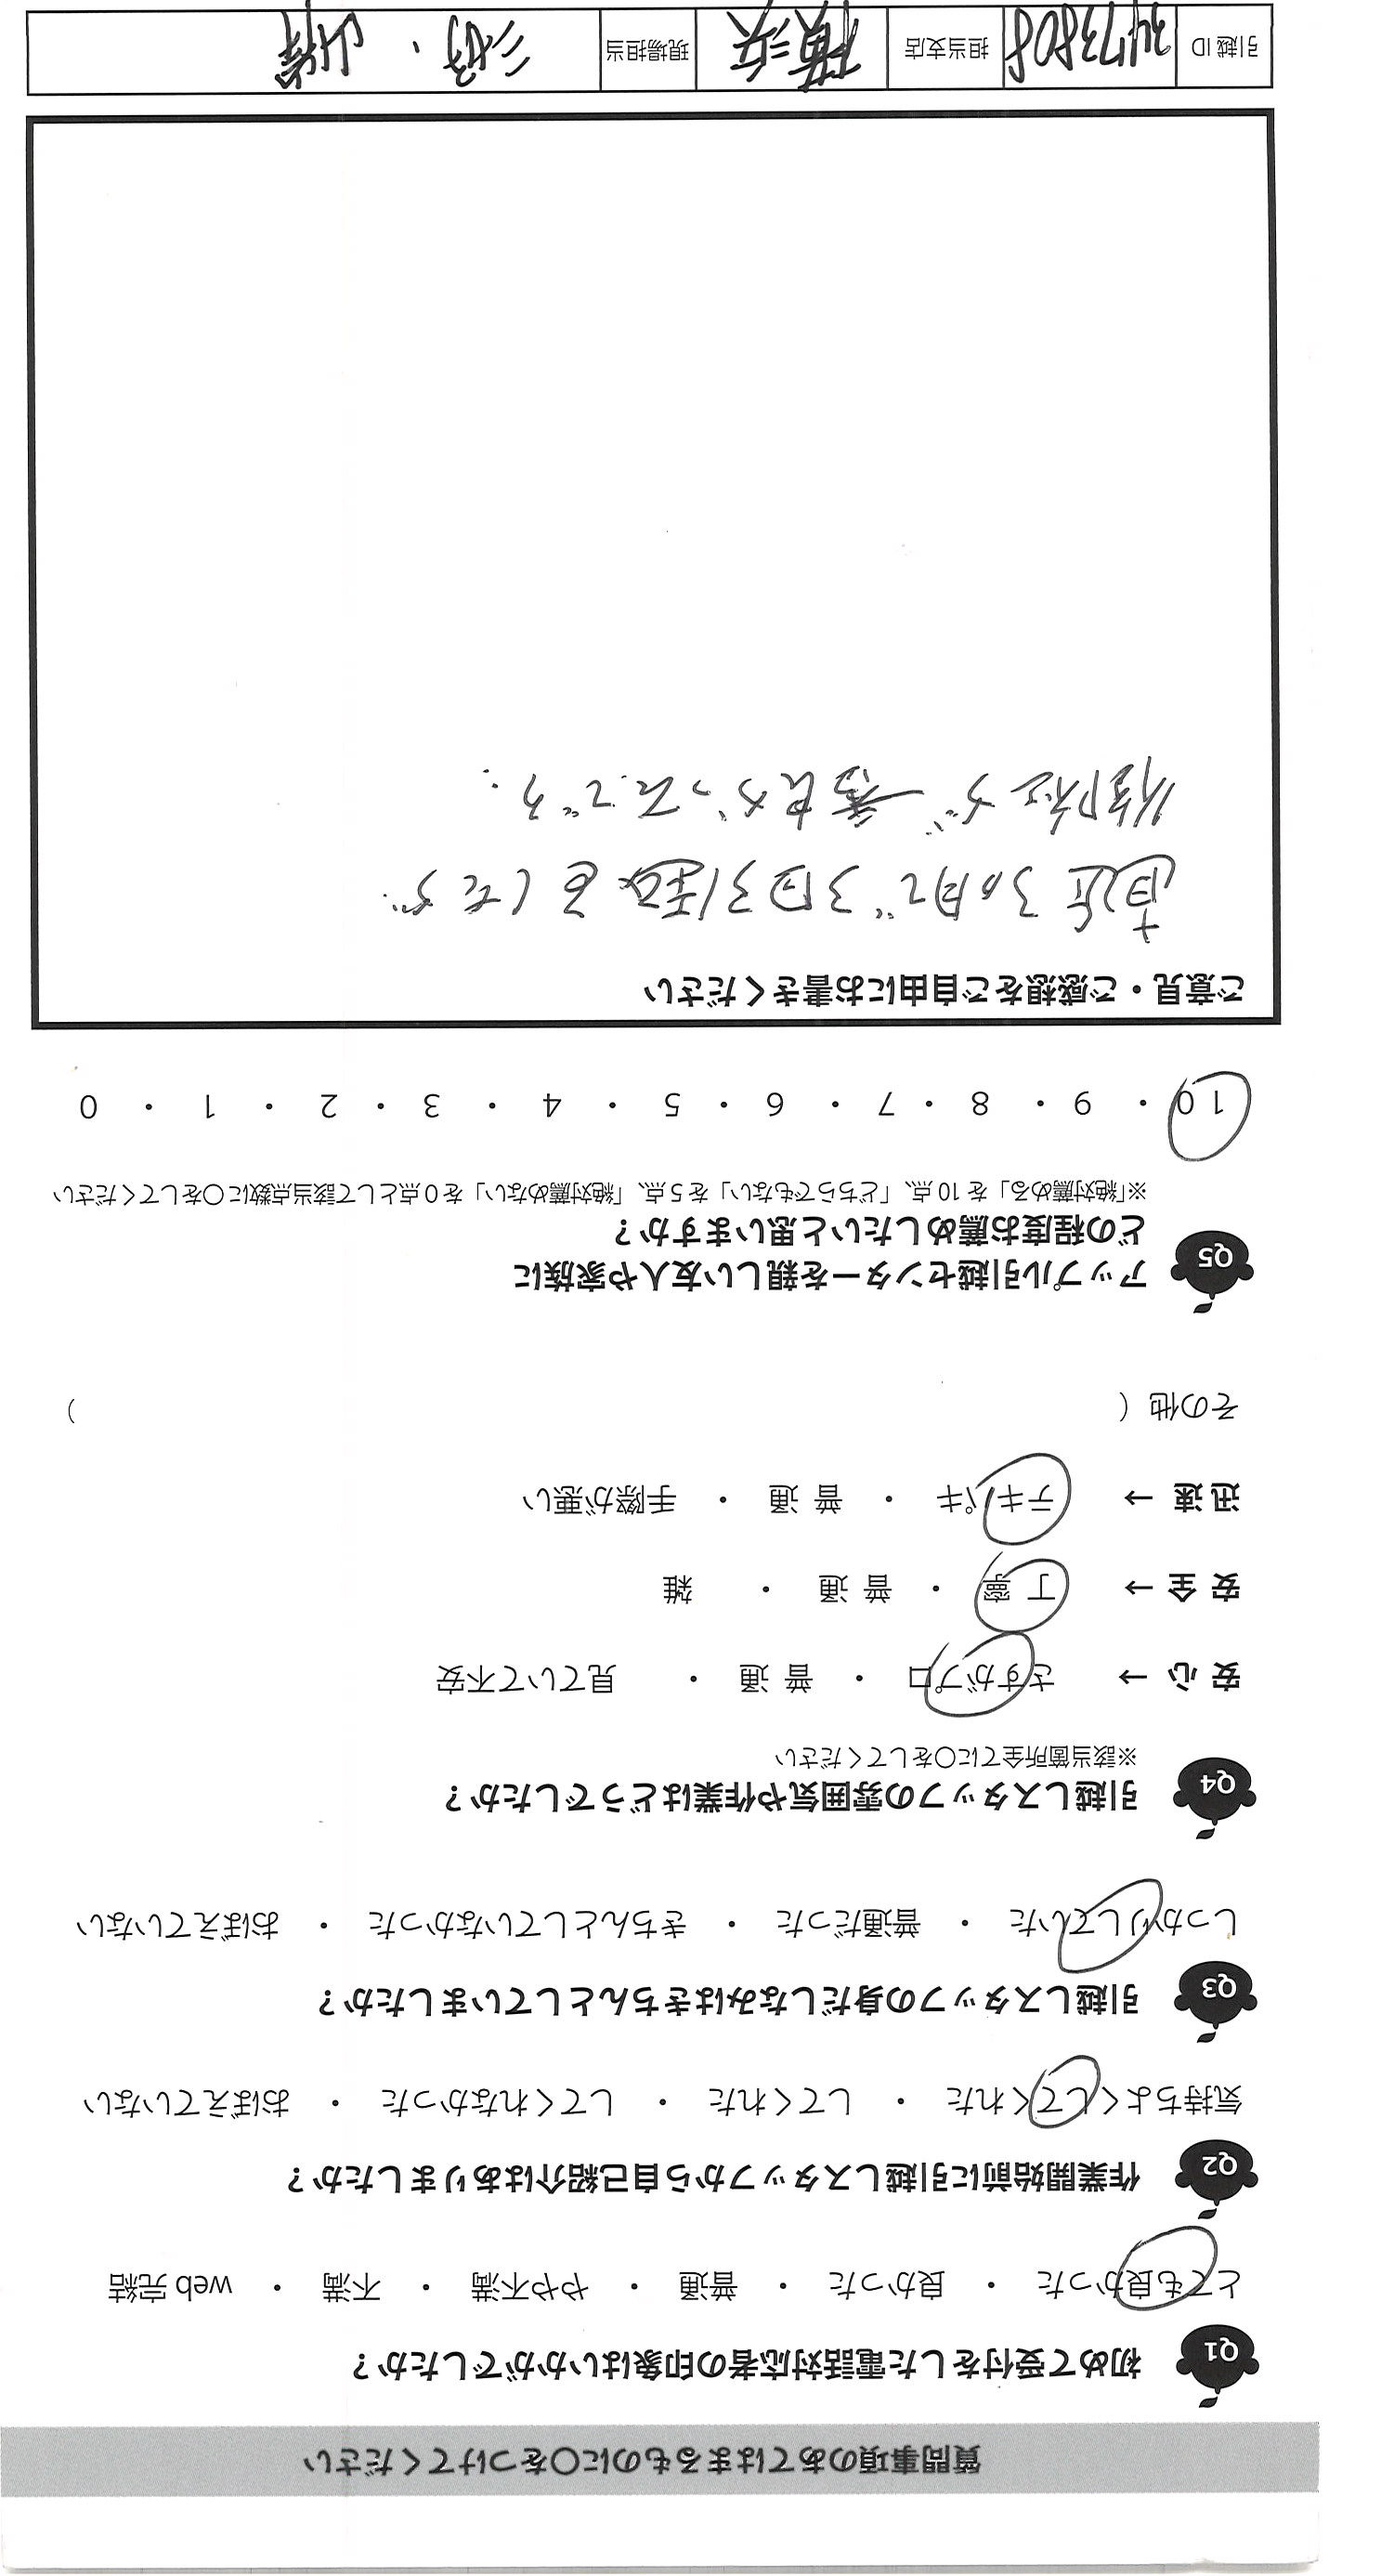 質問事項のあてはまるものに〇をつけてください
Q1 初めて受付をした電話対応者の印象はいかがでしたか？
とても良かった ・ 良かった ・ 普通 ・ やや不満 ・ 不満 ・ web 完結
Q2 作業開始前に引越しスタッフから自己紹介はありましたか？
気持ちよくしてくれた ・ してくれた ・ してくれなかった ・ おぼえていない
Q3 引越しスタッフの身だしなみはきちんとしていましたか？
しっかりしていた ・ 普通だった ・ きちんとしていなかった ・ おぼえていない
Q4 引越しスタッフの雰囲気や作業はどうでしたか？
※該当箇所全てに〇をしてください
安 心 → さすがプロ ・ 普 通 ・ 見ていて不安
安 全 → 丁 寧 ・ 普 通 ・ 雑
迅 速 → テキパキ ・ 普 通 ・ 手際が悪い
その他 （ ）
Q5 アップル引越センターを親しい友人や家族に
どの程度お薦めしたいと思いますか？
※「絶対薦める」を 10 点、「どちらでもない」を 5 点、「絶対薦めない」を 0 点として該当点数に〇をしてください
10 ・ 9 ・ 8 ・ 7 ・ 6 ・ 5 ・ 4 ・ 3 ・ 2 ・ 1 ・ 0
ご意見・ご感想をご自由にお書きください
直近3ヵ月で3回引越をしたが
御社が一番良かったです.
引越 ID 3473808 担当支店 横浜 現場担当 三好 ・